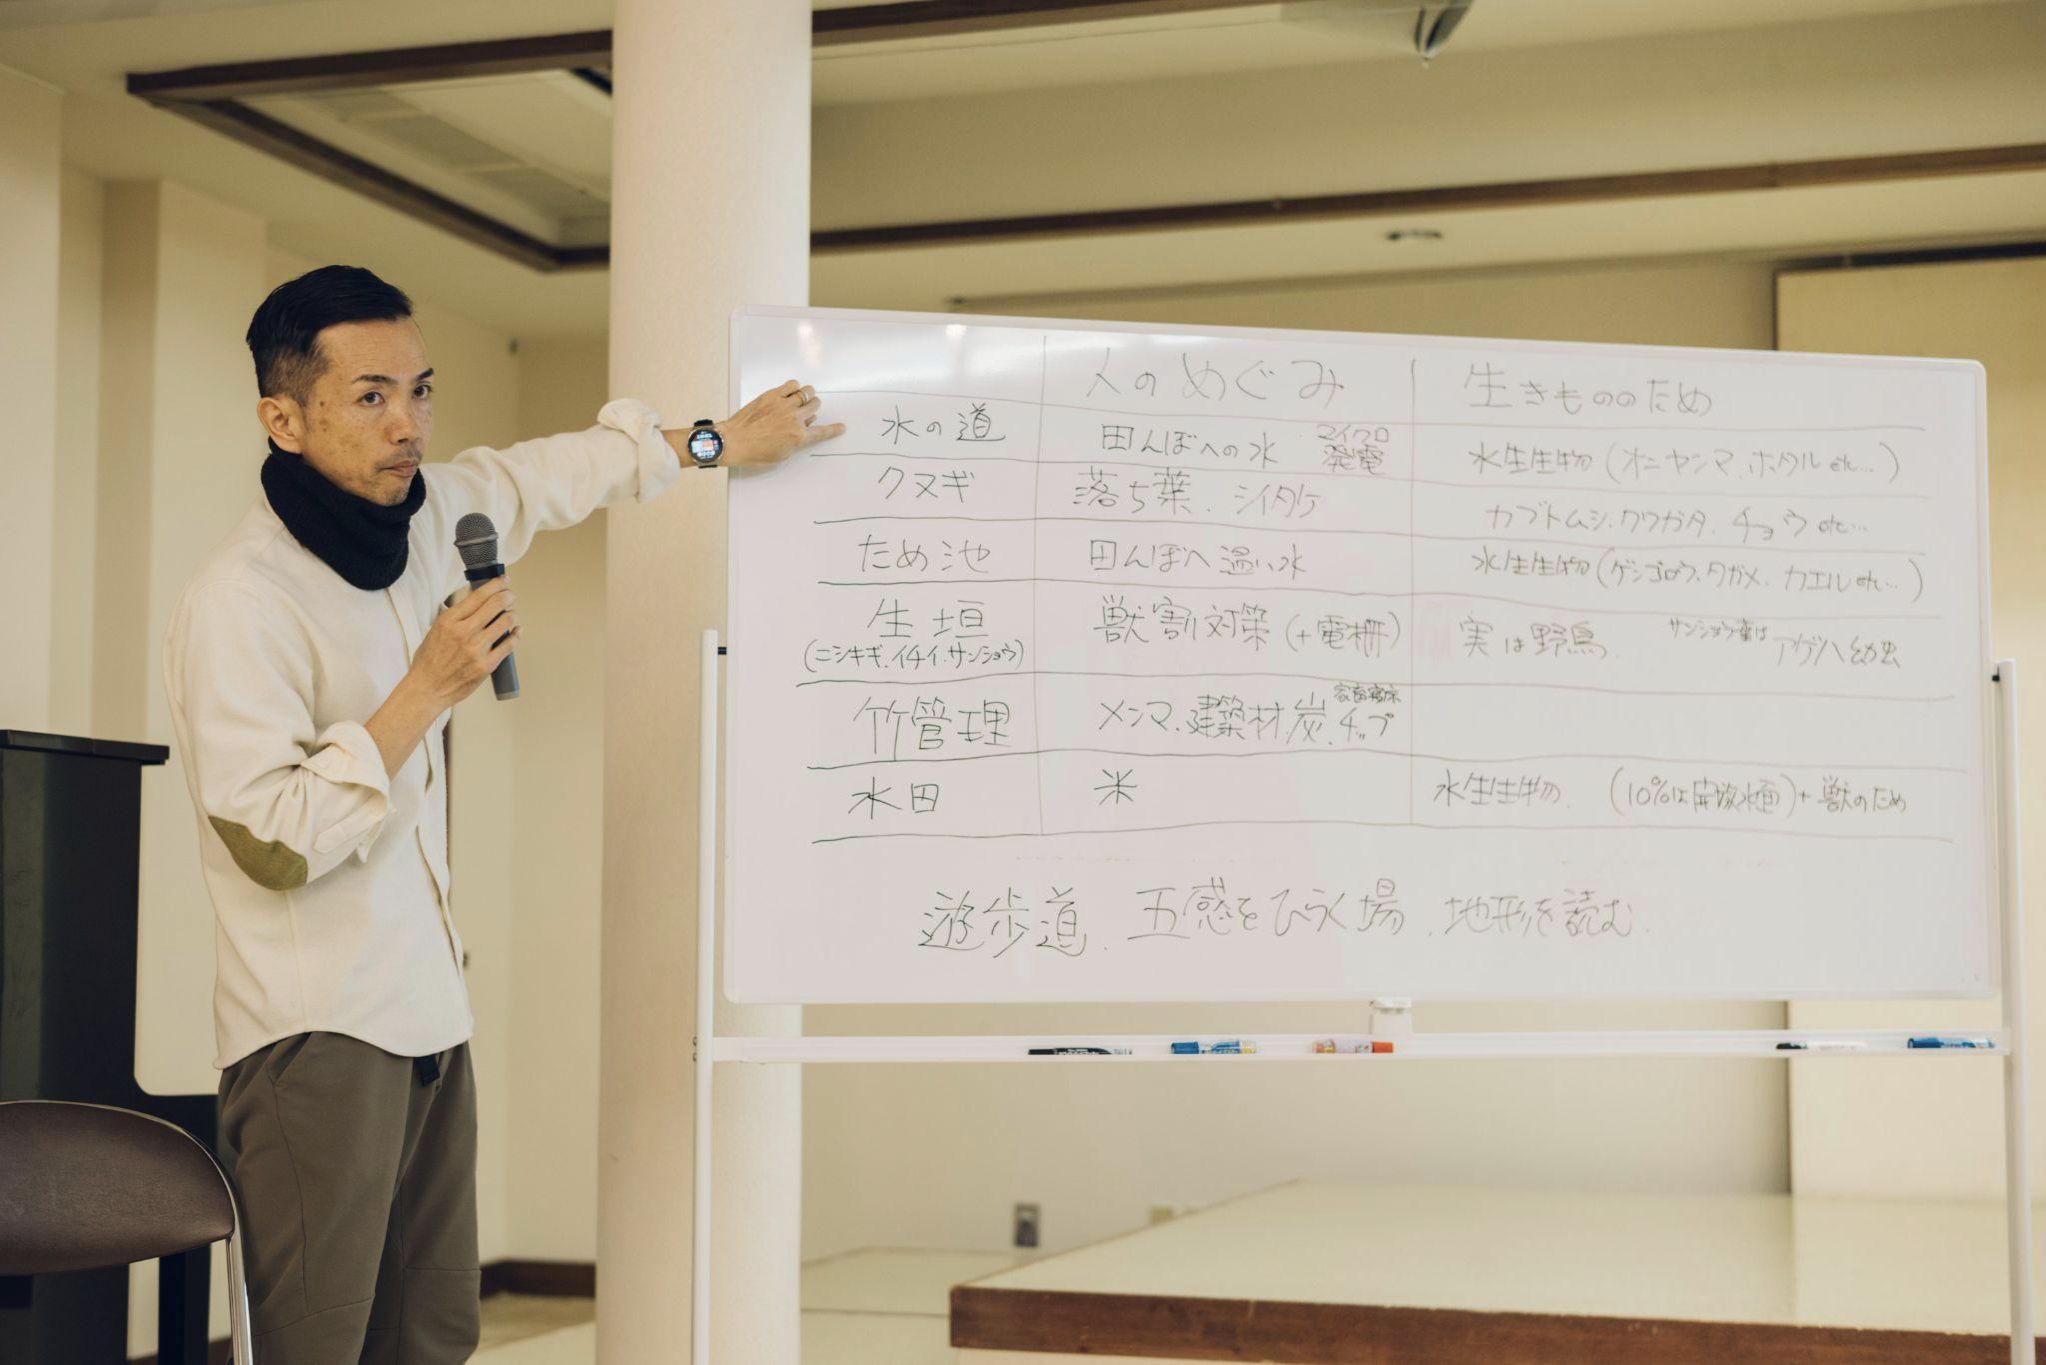 人のめぐみ 生きもののため
水の道 田んぼへの水 マイクロ発電 水生生物(オニヤンマ、ホタルetc…)
クヌギ 落ち葉、シイタケ カブトムシ、クワガタ、チョウetc…
ため池 田んぼへ温い水 水生生物(ゲンゴロウ、タガメ、カエルetc…)
生垣 獣害対策(+電柵) 実は野鳥 サンショウ葉はアゲハ幼虫
(ニシキギ、イチイ、サンショウ)
竹管理 メンマ、建築材、炭、家畜寝床チップ
水田 米 水生生物 (10%は開放水面)+獣のため
遊歩道、五感をひらく場、地形を読む